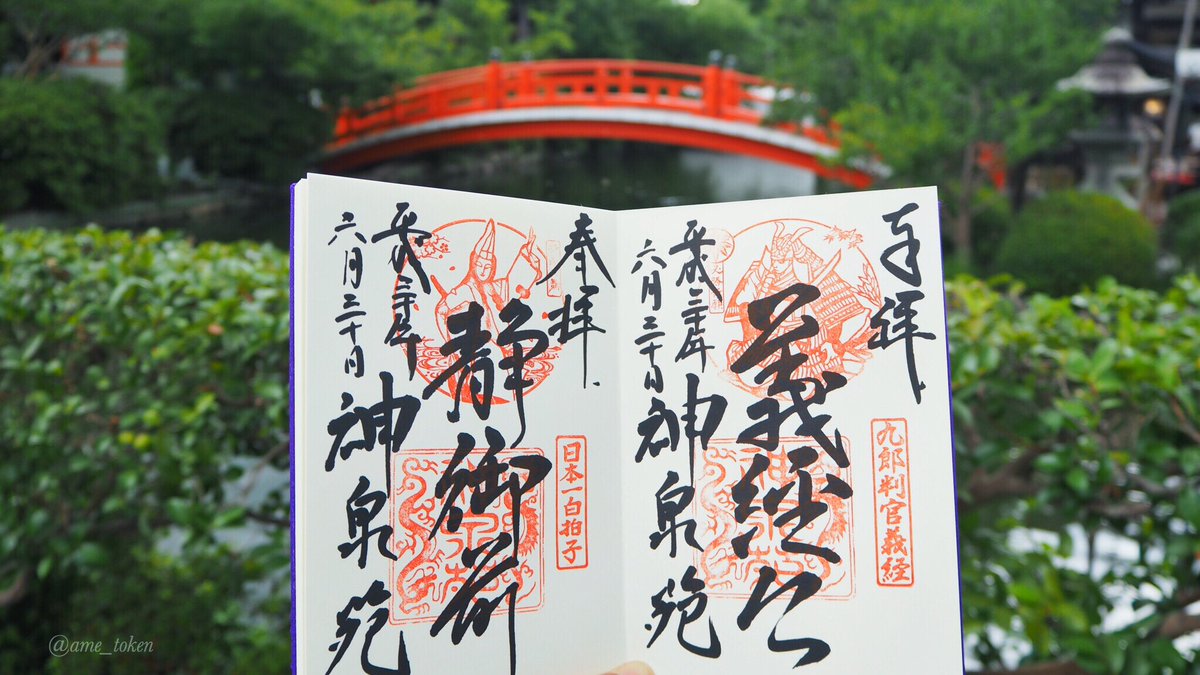 奉拝
九郎判官義経
義経公
平成三十年
六月三十日
神泉苑
奉拝
日本一白拍子
静御前
平成三十年
六月三十日
神泉苑
@ame_token